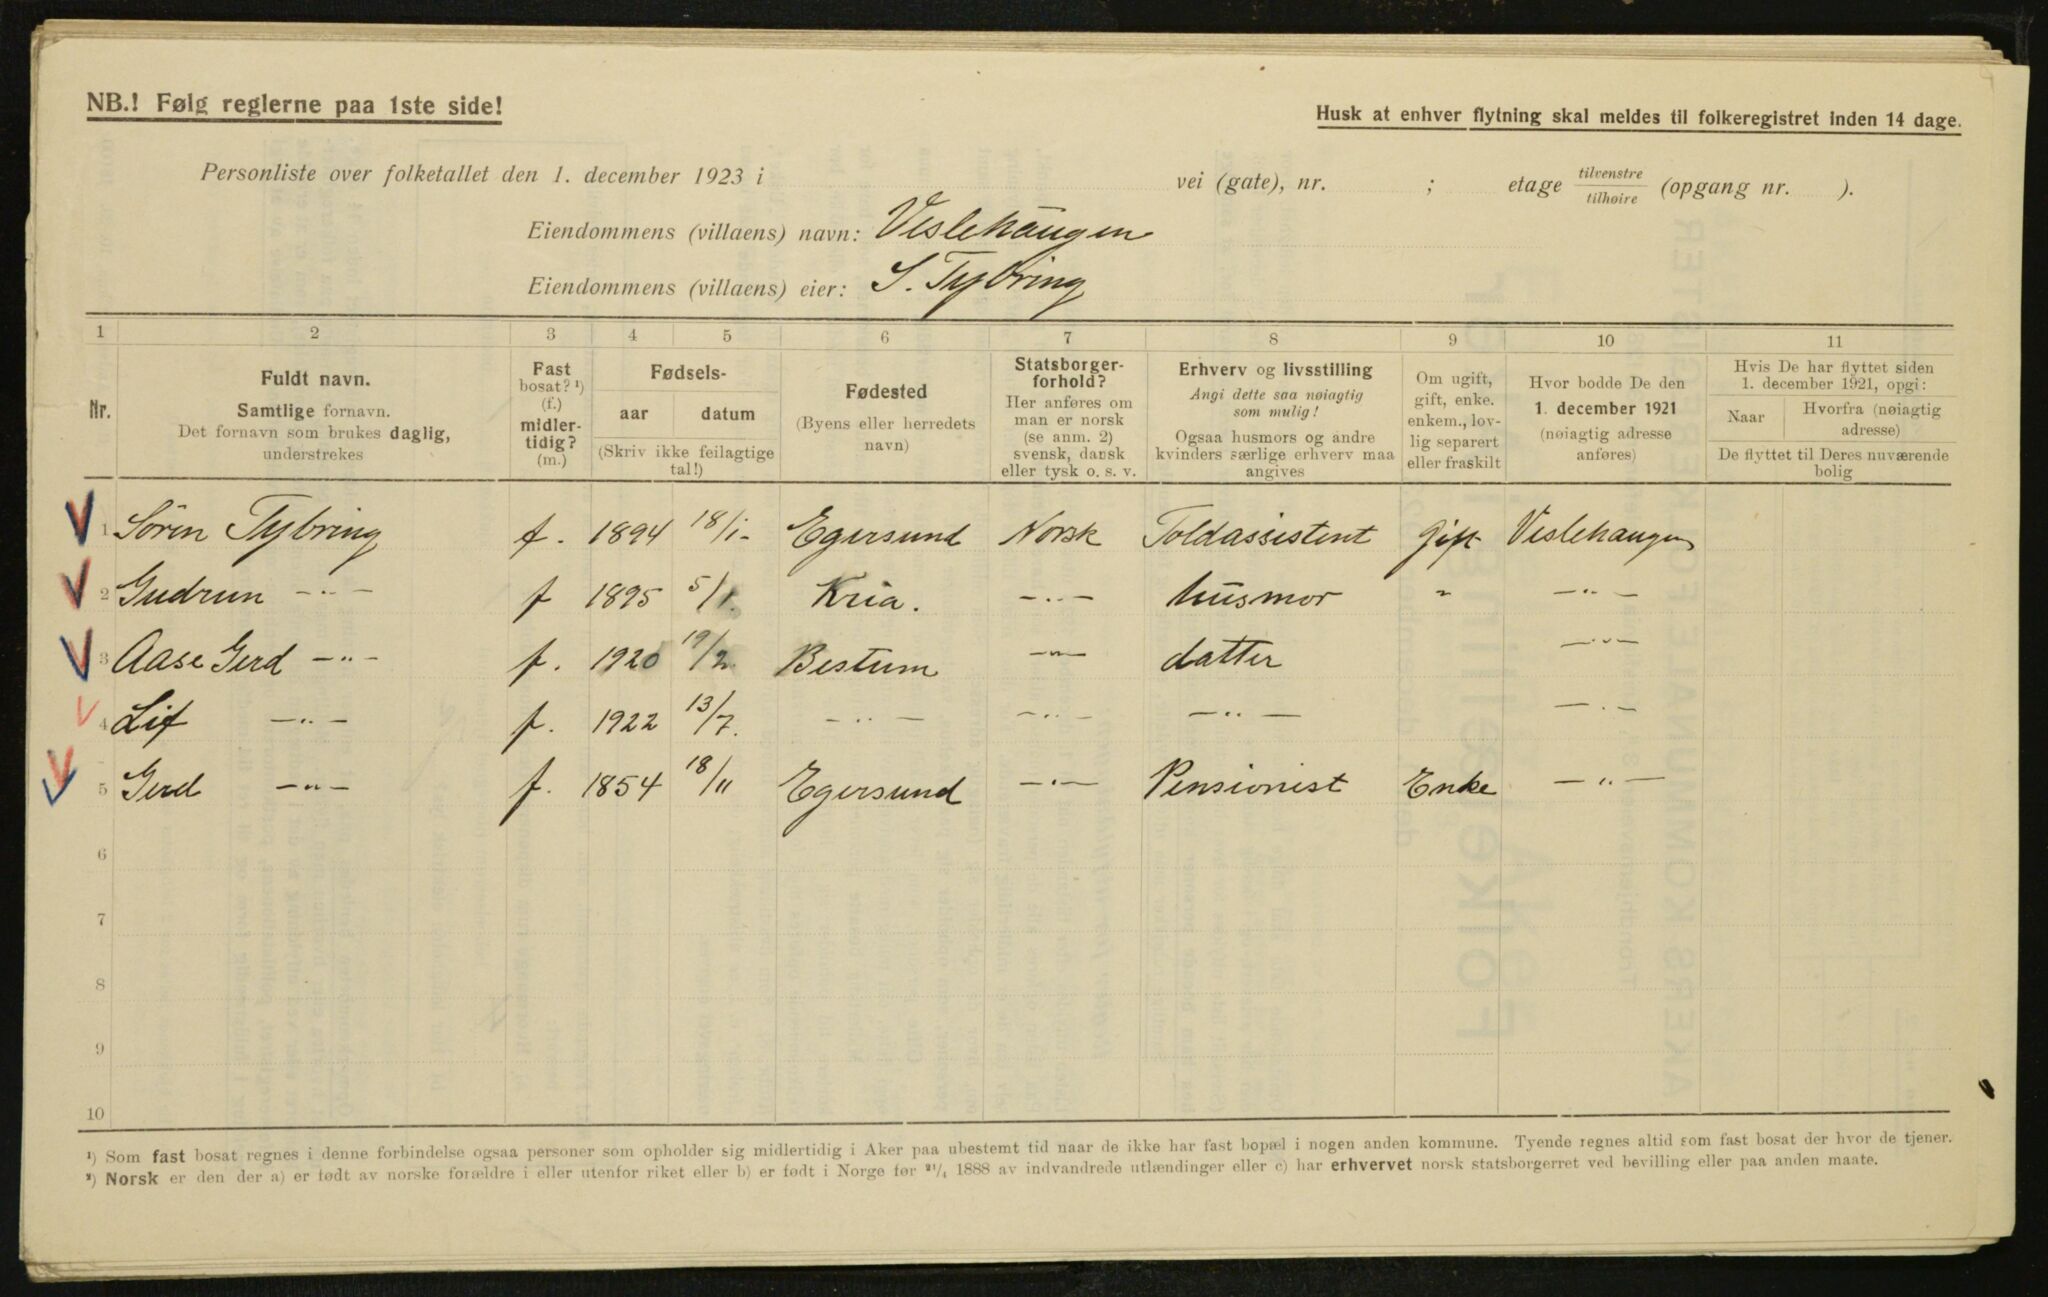 NB.! Følg reglerne paa 1ste side!
Husk at enhver flytning skal meldes til folkeregistret inden 14 dage.
Personliste over folketallet den 1. december 1923 i vei (gate), nr. ; etage tilvenstre/tilhøire (opgang nr. ).
Eiendommens (villaens) navn: Veslehaugen
Eiendommens (villaens) eier: S. Tybring
1 2 3 4 5 6 7 8 9 10 11
Nr.
Fuldt navn.
Samtlige fornavn.
Det fornavn som brukes daglig,
understrekes
Fast
bosat? ¹)
(f.)
midler-
tidig?
(m.)
Fødsels-
aar datum
(Skriv ikke feilagtige
tal!)
Fødested
(Byens eller herredets
navn)
Statsborger-
forhold?
Her anføres om
man er norsk
(se anm. 2)
svensk, dansk
eller tysk o. s. v.
Erhverv og livsstilling
Angi dette saa nøiagtig
som mulig!
Ogsaa husmors og andre
kvinders særlige erhverv maa
angives
Om ugift,
gift, enke.
enkem., lov-
lig separert
eller fraskilt
Hvor bodde De den
1. december 1921
(nøiagtig adresse
anføres)
Hvis De har flyttet siden
1. december 1921, opgi:
Naar Hvorfra (nøiagtig
adresse)
De flyttet til Deres nuværende
bolig
1 Sören Tybring f. 1894 18/1- Egersund Norsk Toldassistent Gift Veslehaugen
2 Gudrun —"— f 1895 5/1. Kria. —"— husmor " —"—
3 Aase Gerd —"— f. 1920 19/2. Bestum —"— datter —"—
4 Lif —"— f. 1922 13/7. —"— —"— —"— —"—
5 Gerd —"— f. 1854 18/11 Egersund —"— Pensionist Enke —"—
6
7
8
9
10
¹) Som fast bosat regnes i denne forbindelse ogsaa personer som opholder sig midlertidig i Aker paa ubestemt tid naar de ikke har fast bopæl i nogen anden kommune. Tyende regnes altid som fast bosat der hvor de tjener.
²) Norsk er den der a) er født av norske forældre i eller utenfor riket eller b) er født i Norge før ²¹/₄ 1888 av indvandrede utlændinger eller c) har erhvervet norsk statsborgerret ved bevilling eller paa anden maate.